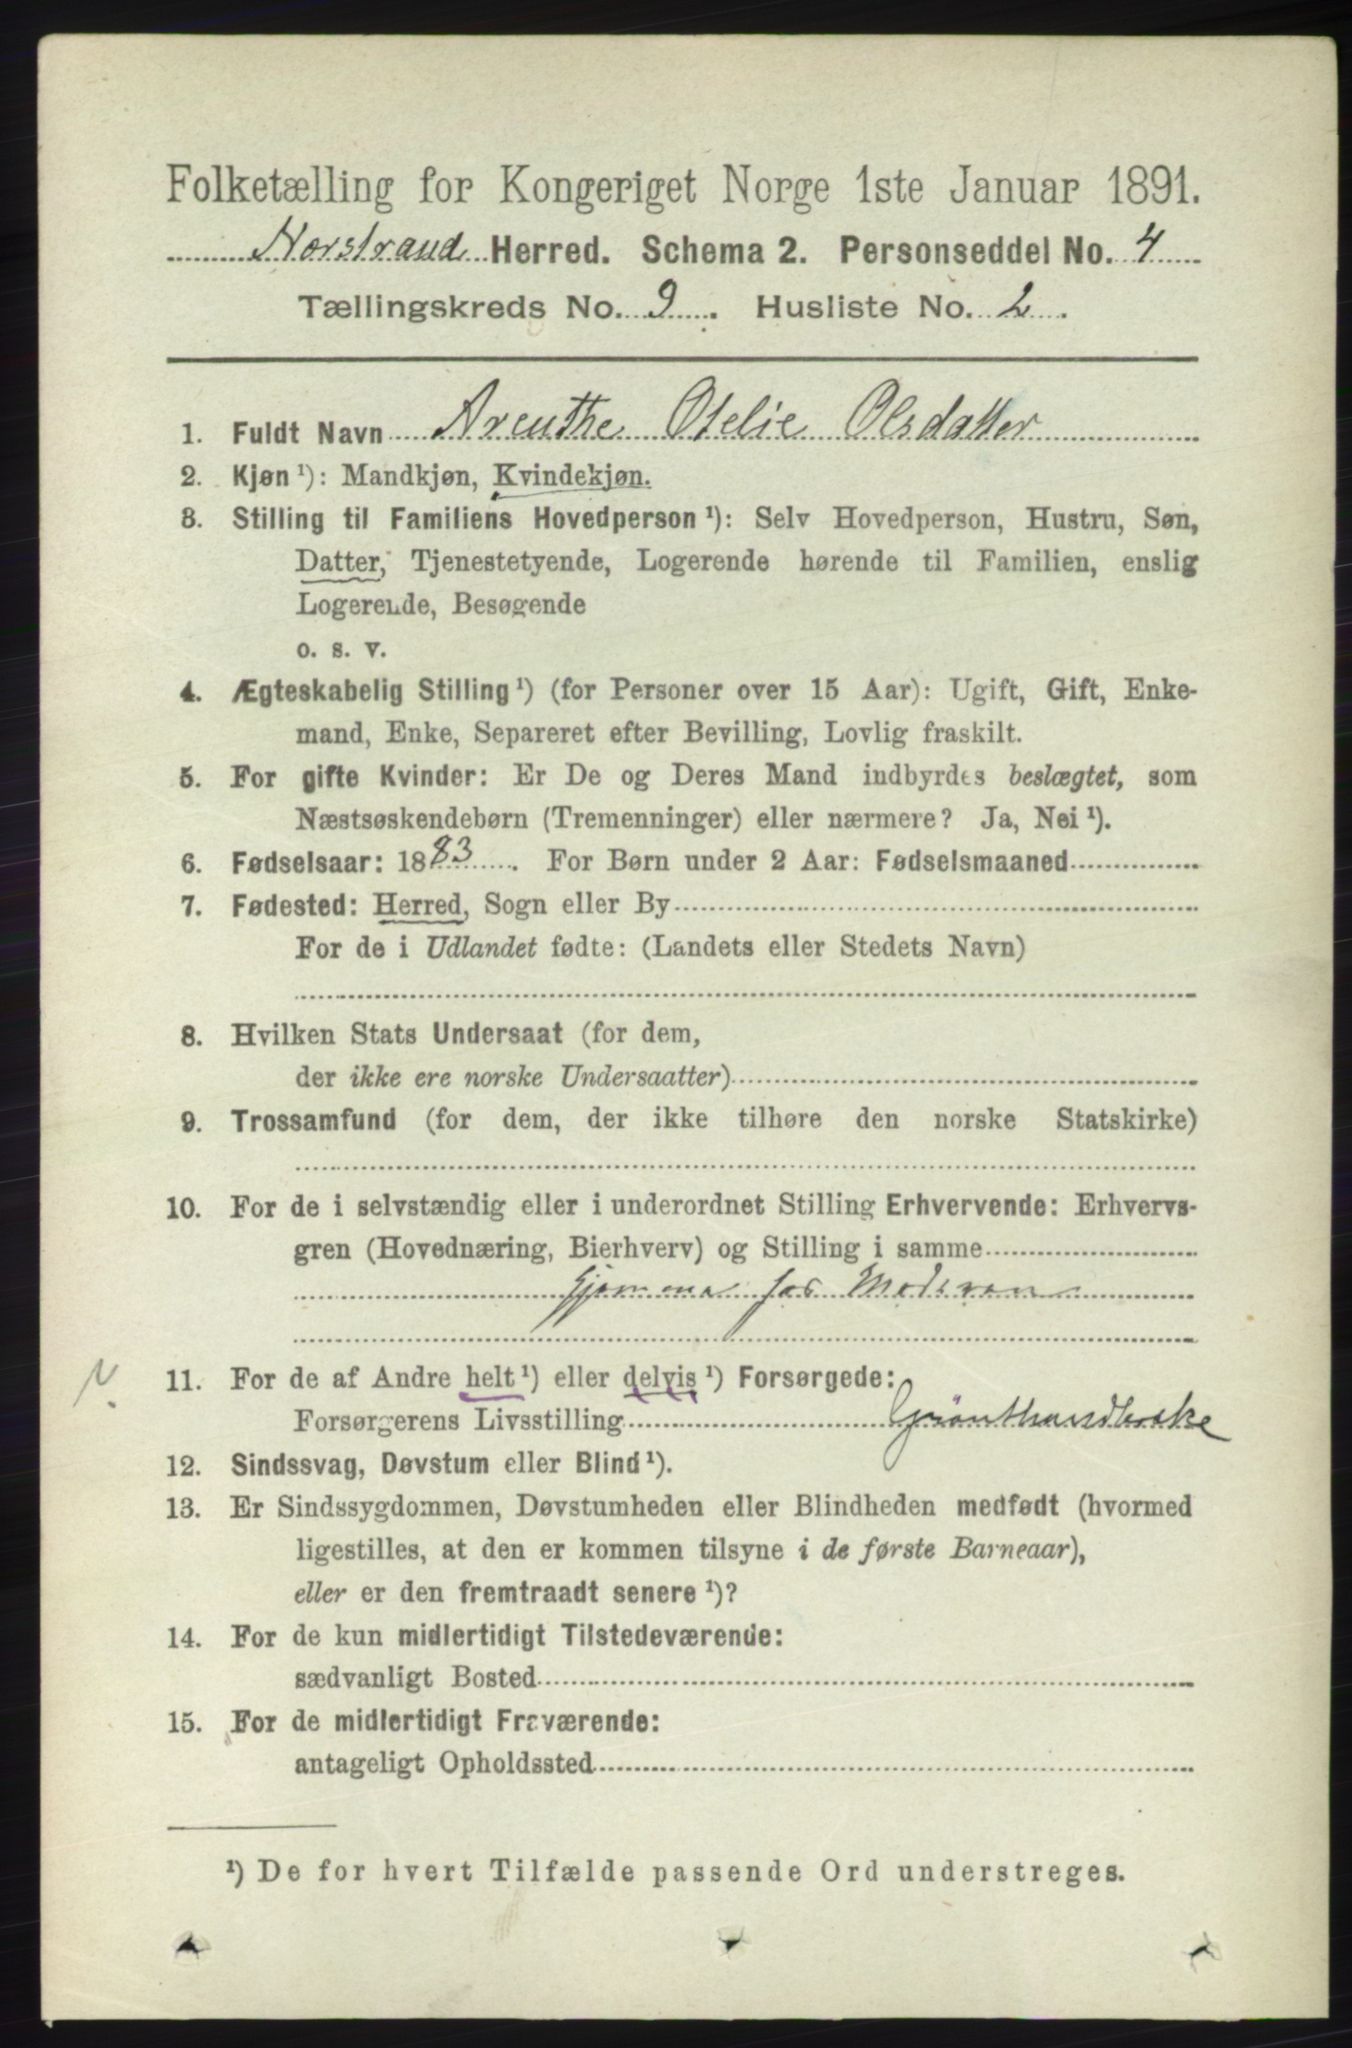 Folketælling for Kongeriget Norge 1ste Januar 1891.
Norstrand Herred. Schema 2. Personseddel No. 4
Tællingskreds No. 9. Husliste No. 2.
1. Fuldt Navn Arenthe Otelie Olsdatter
2. Kjøn ¹): Mandkjøn, Kvindekjøn.
3. Stilling til Familiens Hovedperson ¹): Selv Hovedperson, Hustru, Søn,
Datter, Tjenestetyende, Logerende hørende til Familien, enslig
Logerende, Besøgende
o. s. v.
4. Ægteskabelig Stilling ¹) (for Personer over 15 Aar): Ugift, Gift, Enke-
mand, Enke, Separeret efter Bevilling, Lovlig fraskilt.
5. For gifte Kvinder: Er De og Deres Mand indbyrdes beslægtet, som
Næstsøskendebørn (Tremenninger) eller nærmere? Ja, Nei ¹).
6. Fødselsaar: 1883. For Børn under 2 Aar: Fødselsmaaned
7. Fødested: Herred, Sogn eller By
For de i Udlandet fødte: (Landets eller Stedets Navn)
8. Hvilken Stats Undersaat (for dem,
der ikke ere norske Undersaatter)
9. Trossamfund (for dem, der ikke tilhøre den norske Statskirke)
10. For de i selvstændig eller i underordnet Stilling Erhvervende: Erhvervs-
gren (Hovednæring, Bierhverv) og Stilling i samme
Hjemme hos Moderen
11. For de af Andre helt ¹) eller delvis ¹) Forsørgede:
Forsørgerens Livsstilling
12. Sindssvag, Døvstum eller Blind ¹).
13. Er Sindssygdommen, Døvstumheden eller Blindheden medfødt (hvormed
ligestilles, at den er kommen tilsyne i de første Barneaar),
eller er den fremtraadt senere ¹)?
14. For de kun midlertidigt Tilstedeværende:
sædvanligt Bosted
15. For de midlertidigt Fraværende:
antageligt Opholdssted
¹) De for hvert Tilfælde passende Ord understreges.